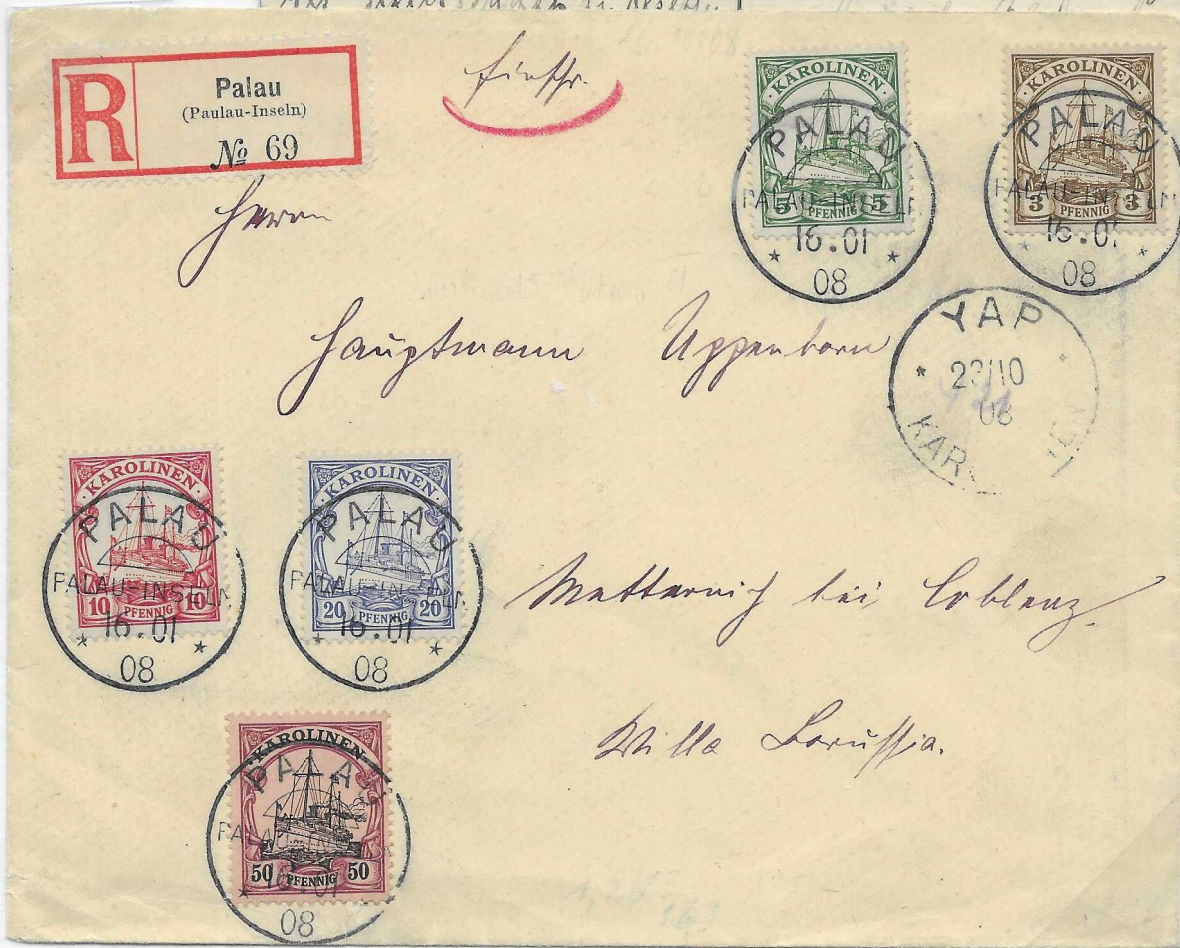 R
Palau
(Paulau-Inseln)
№ 69
Einschr.
KAROLINEN
5 PFENNIG 5
PALAU
PALAU-INSELN
16.01
08
KAROLINEN
3 PFENNIG 3
PALAU
PALAU-INSELN
16.01
08
Herrn
YAP
23/10
08
KAROLINEN
Hauptmann Uppenborn
KAROLINEN
10 PFENNIG 10
PALAU
PALAU-INSELN
16.01
08
KAROLINEN
20 PFENNIG 20
PALAU
PALAU-INSELN
16.01
08
Metternich bei Coblenz.
Willa Borussia.
KAROLINEN
50 PFENNIG 50
PALAU
PALAU-INSELN
16.01
08